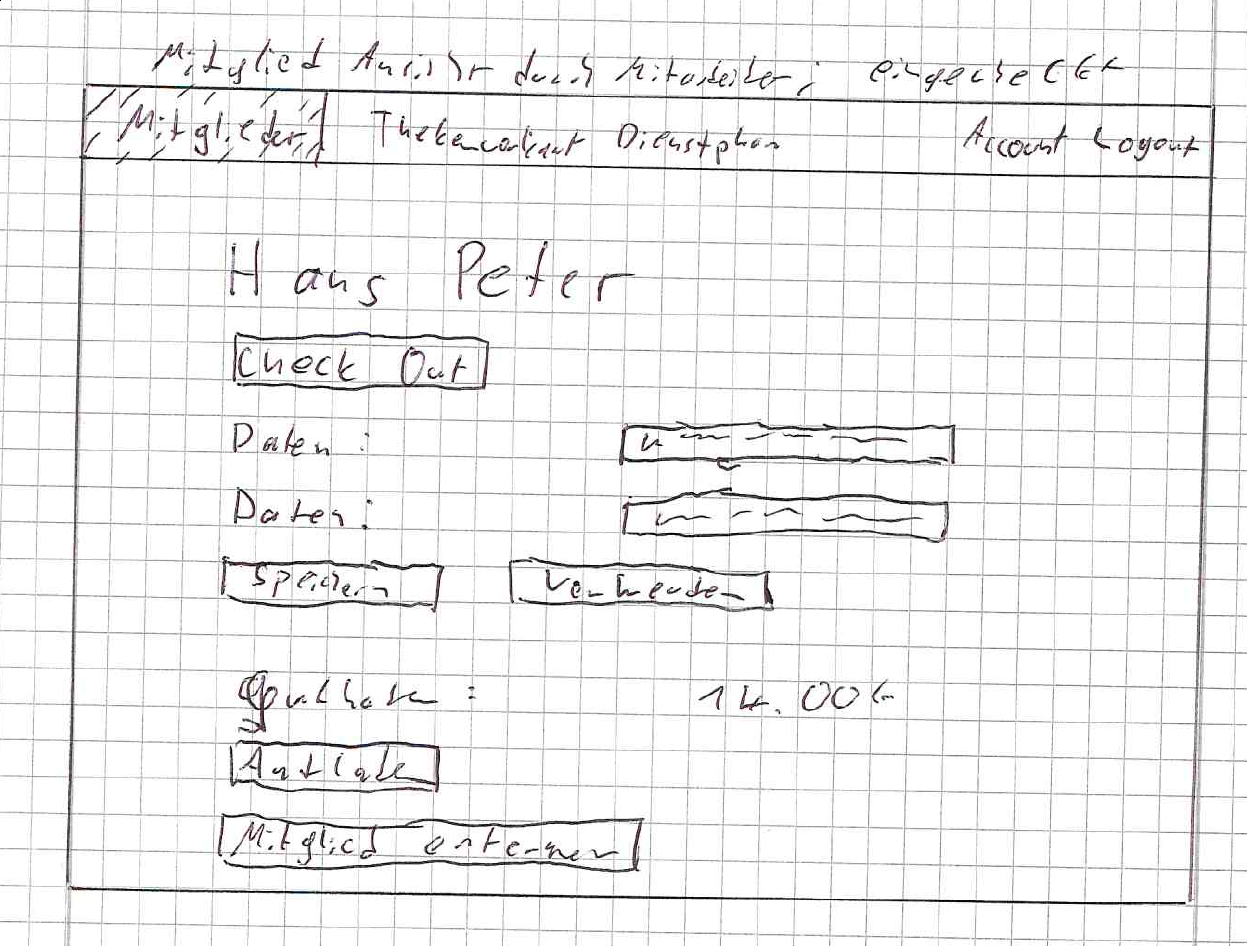 Mitglied Ansicht durch Mitarbeiter; eingecheckt
Mitglieder Thekenverkauf Dienstplan Account Logout
Hans Peter
Check Out
Daten:
Daten:
Speichern Verwerfen
Guthaben: 14.00€
Aufladen
Mitglied entfernen